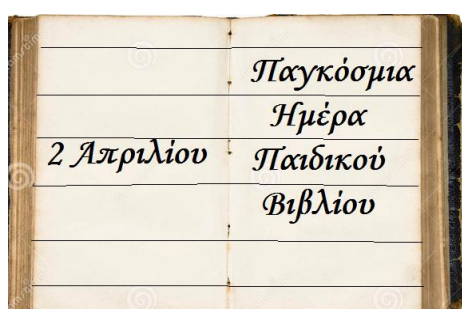 2 Απριλίου
Παγκόσμια
Ημέρα
Παιδικού
Βιβλίου